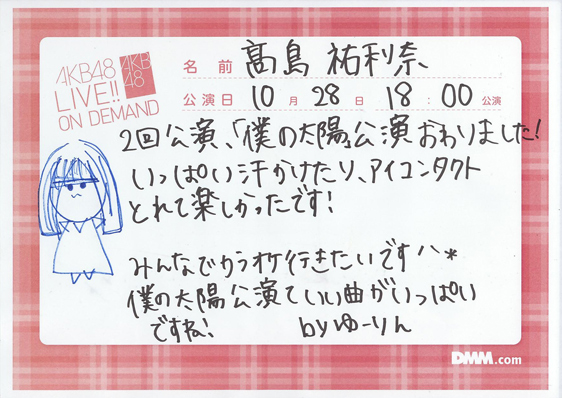 AKB48
LIVE!!
ON DEMAND
AKB
48
名前 髙島 祐利奈
公演日 10月28日 18:00公演
2回公演、「僕の太陽」公演おわりました!
いっぱい汗かけたり、アイコンタクト
とれて楽しかったです!
みんなでカラオケ行きたいです^^*
僕の太陽公演ていい曲がいっぱい
ですね!
byゆーりん
DMM.com